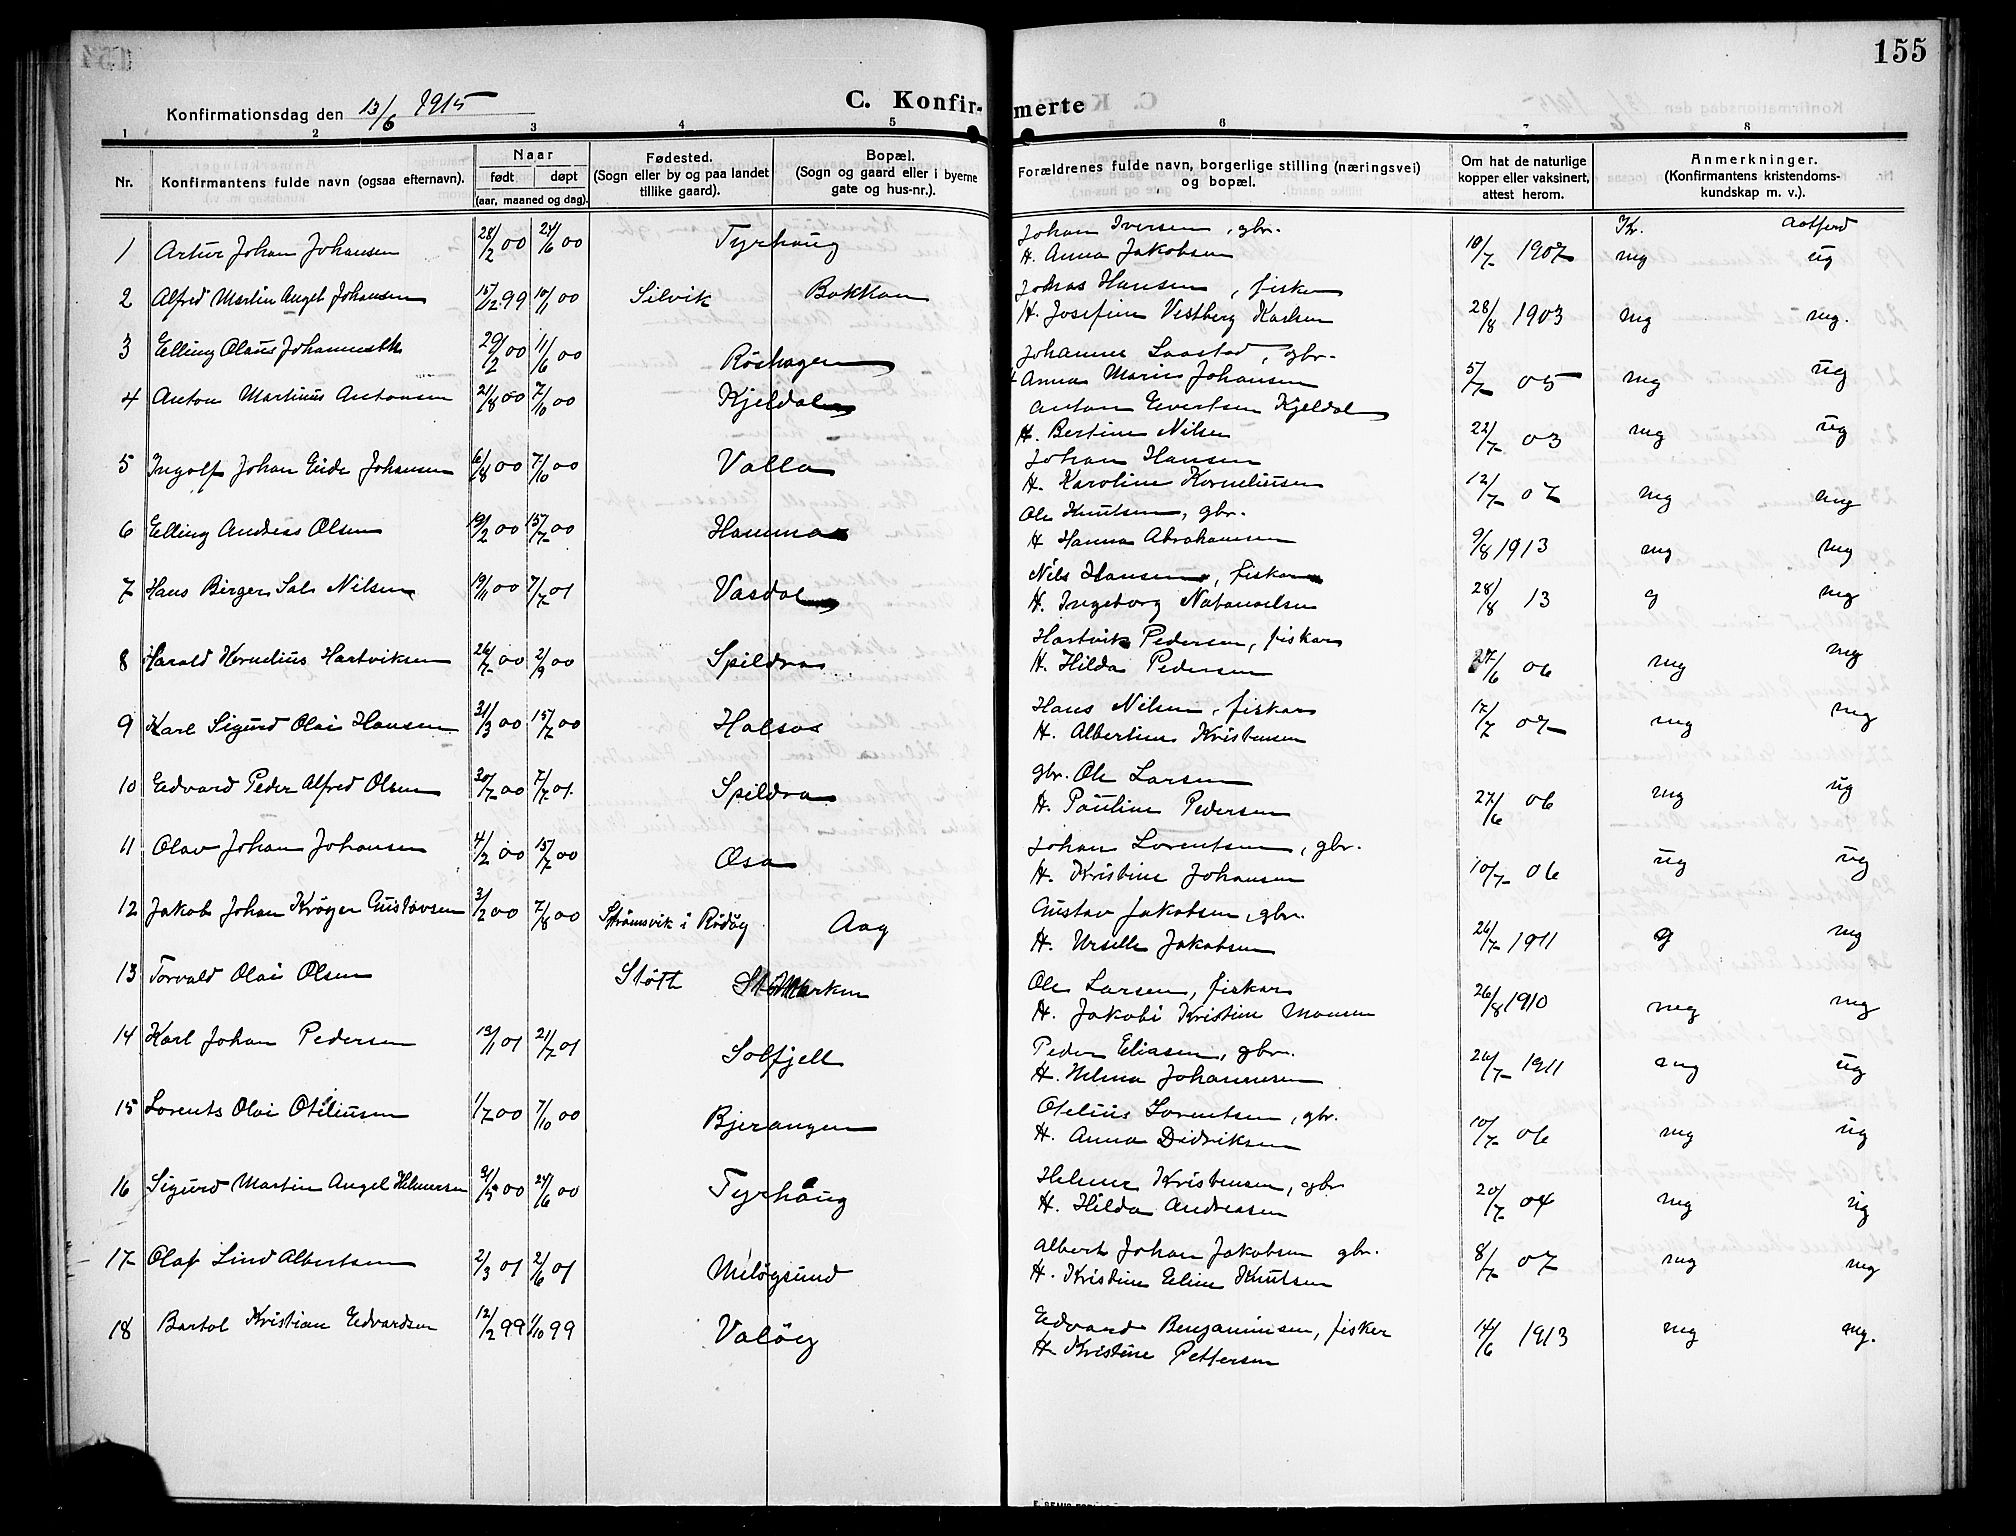 155
Konfirmationsdag den 13/6 1915
C. Konfirmerte
1 2 3 4 5 6 7 8
Nr.
Konfirmantens fulde navn (ogsaa efternavn).
Naar
født døpt
(aar, maaned og dag).
Fødested.
(Sogn eller by og paa landet
tillike gaard).
Bopæl.
(Sogn og gaard eller i byerne
gate og hus-nr.).
Forældrenes fulde navn, borgerlige stilling (næringsvei)
og bopæl.
Om hat de naturlige
kopper eller vaksinert,
attest herom.
Anmerkninger.
(Konfirmantens kristendoms-
kundskap m. v.).
Kr. Aatferd
1 Artur Johan Johansen 28/2 00 24/6 00 Tyrhaug Johan Iversen, gbr.
H. Anna Jakobsen 10/7 1907 mg ug
2 Alfred Martin Angel Johansen 15/12 99 10/1 00 Silvik Bakkan Johas Hansen, fisker
H. Josefine Vestberg Karlsen 28/8 1903 mg mg.
3 Elling Olaus 29/2 00 11/6 00 Røshagen Laastad, gbr.
Anna Marie Johansen 5/7 05 mg ug
4 Anton Martinus Antonsen 21/8 00 7/10 00 Kjeldalen Anton Evertsen Kjeldal
H. Bertine Nilsen 22/7 03 mg ug
5 Ingolf Johan Eide Johansen 6/8 00 7/10 00 Valla Johan Hansen
H. Karoline Korneliusen 12/7 07 mg mg
6 Elling Andreas Olsen 19/2 00 15/7 00 Hamma Ole Knutsen, gbr.
H Hanna Abrahamsen 9/8 1913 mg mg
7 Hans Birger Nilsen 19/11 00 7/7 01 Vasdal Nils Hansen, fisker
H. Ingeborg Natanaelsen 28/8 13 g mg
8 Harald Kornelius Hartviksen 26/7 00 2/9 00 Spildra Hartvik Pedersen, fisker
H. Hilda Pedersen 27/6 06 mg mg
9 Karl Sigurd Olai Hansen 31/3 00 15/7 00 Halsos Hans Nilsen, fisker
H. Albertine Kristensen 17/7 07 mg mg
10 Edvard Peder Alfred Olsen 30/7 00 7/7 01. Spildra gbr. Ole Larsen
H. Pauline Pedersen 27/6 06 mg ug
11 Olav Johan Johansen 4/2 00 15/7 00 Osa Johan Lorentsen, gbr.
H. Kristine Johansen 10/7 06 ug ug
12 Jakob Johan Krøger Gustavsen 3/2 00 7/8 00 Strømsvik i Rødøy Aag Gustav Jakobsen, gbr.
H. Urselle Jakobsen 26/7 1911 g mg
13 Torvald Olai Olsen Støtt Ole Larsen, fisker
H. Jakobi Kristine Monsen 26/8 1910 mg mg
14 Karl Johan Pedersen 13/1 01 21/7 01 Solfjell Peder Eliasen, gbr.
H. Helma Johannesen 26/7 1911 mg ug
15 Lorents Olai Oteliusen 1/7 00 7/10 00 Bjerangen Otelius Lorentsen, gbr.
H. Anna Didriksen 10/7 06 mg ug
16 Sigurd Martin Angel Helmersen 9/5 00 24/6 00 Tyrhaug Helmer Kristensen, gbr
H. Hilda Andreasen 20/7 04 mg ug
17 Olaf Lind Albertsen 2/3 01 2/6 01 Meløysund Albert Johan Jakobsen gbr.
H. Kristine Eline Knutsen 8/7 07 mg mg
18 Bartol Kristian Edvardsen 12/2 99 1/10 99 Valøy Edvard Benjaminsen, fisker
H. Kristine Pettersen 14/6 1913 mg mg.